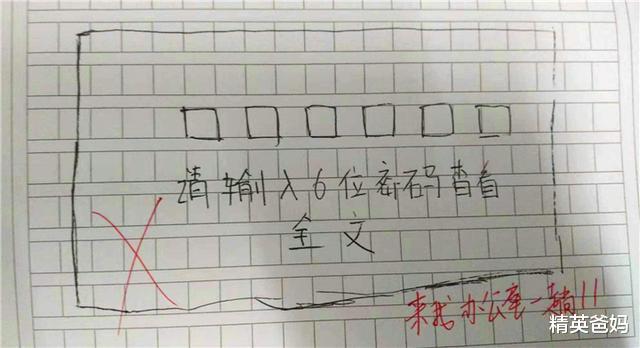 请输入6位密码查看
全文
来我办公室一趟!!
精英爸妈